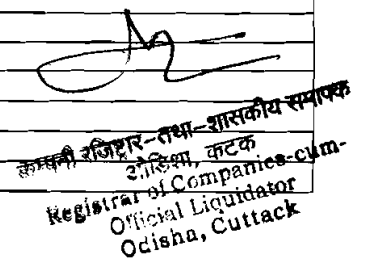 कम्पनी रजिष्ट्रार-तथा-शासकीय समापक
ओडिशा, कटक
Registrar of Companies-cum-
Official Liquidator
Odisha, Cuttack